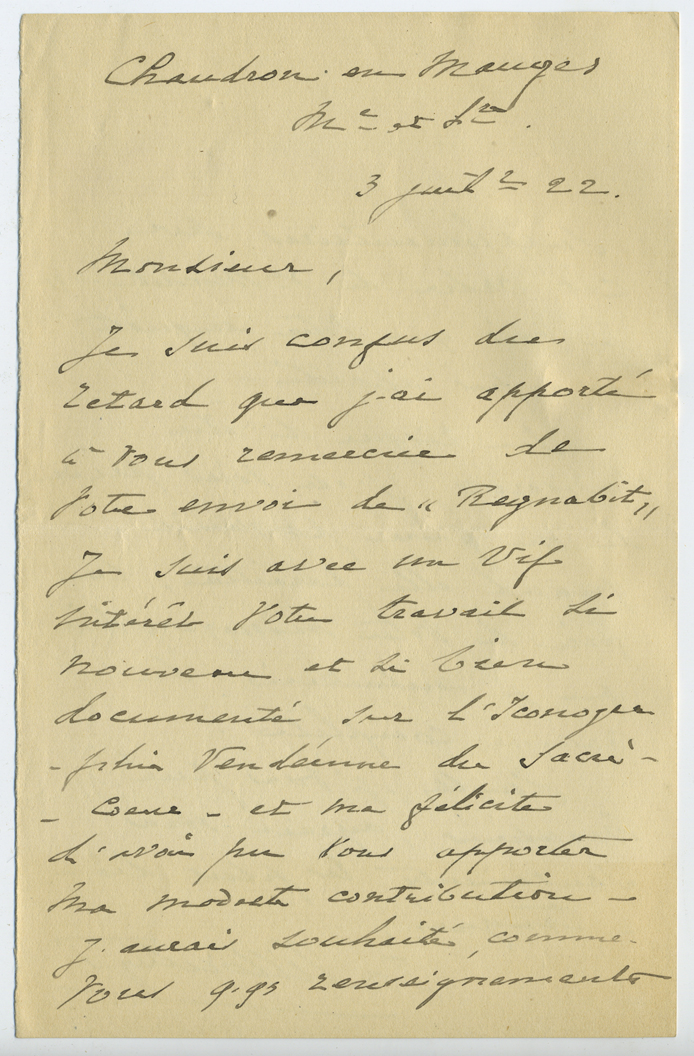 Chaudron en Mauges
Mne et Lre.
3 juillt 22.
Monsieur,
Je suis confus du
retard que j'ai apporté
à vous remercier de
votre envoi de " Regnabit "
Je suis avec un vif
intérêt votre travail si
nouveau et si bien
documenté, sur l'Iconogra
-phie Vendéenne du Sacré-
- Coeur - et me félicite
d'avoir pu vous apporter
ma modeste contribution -
J'aurais souhaité, comme
vous q.qs renseignements